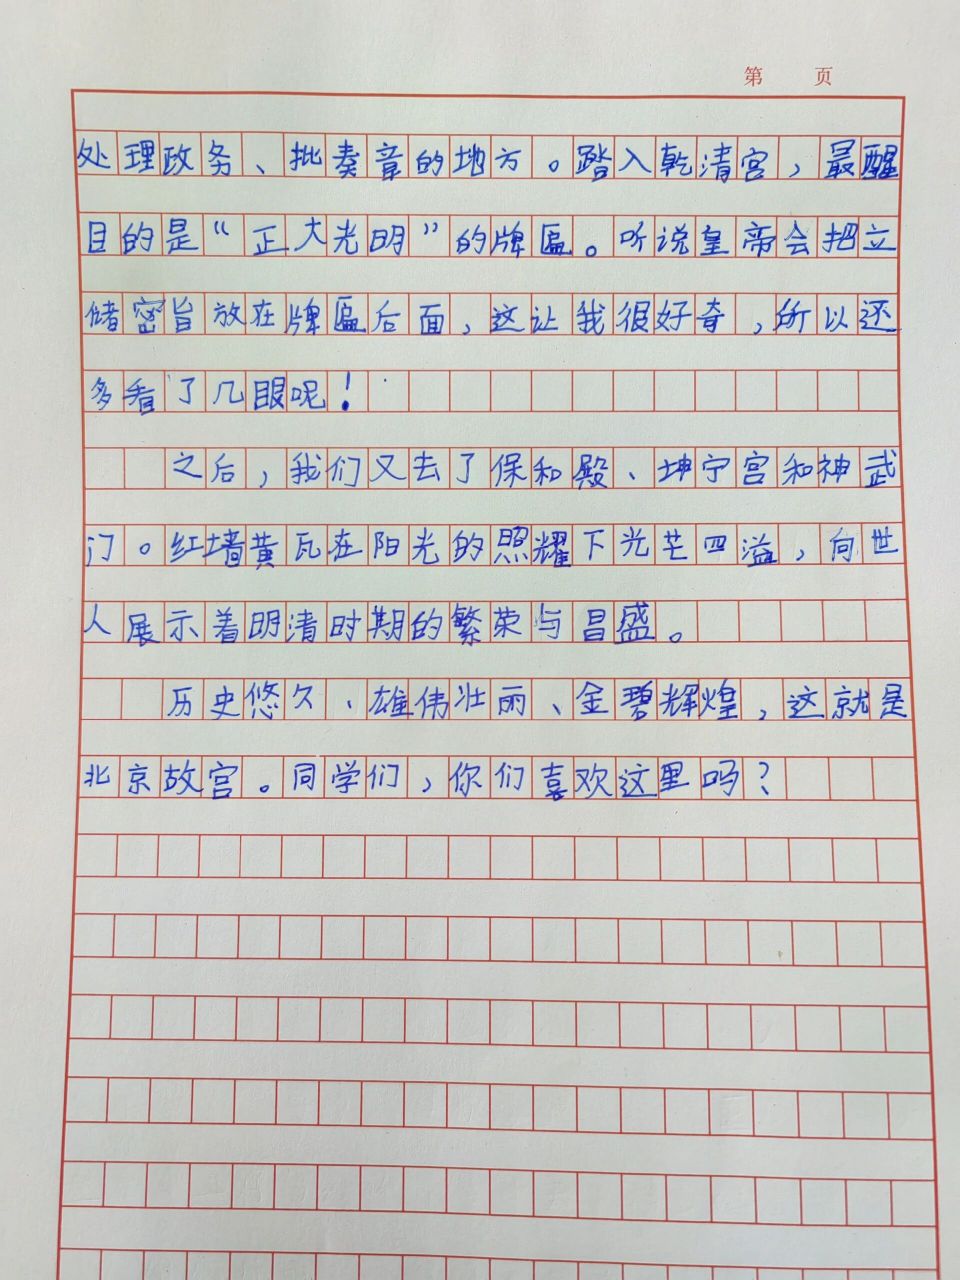 第 页
处理政务、批奏章的地方。踏入乾清宫,最醒
目的是“正大光明”的牌匾。听说皇帝会把立
储密旨放在牌匾后面,这让我很好奇,所以还
多看了几眼呢!
之后,我们又去了保和殿、坤宁宫和神武
门。红墙黄瓦在阳光的照耀下光芒四溢,向世
人展示着明清时期的繁荣与昌盛。
历史悠久、雄伟壮丽、金碧辉煌,这就是
北京故宫。同学们,你们喜欢这里吗?